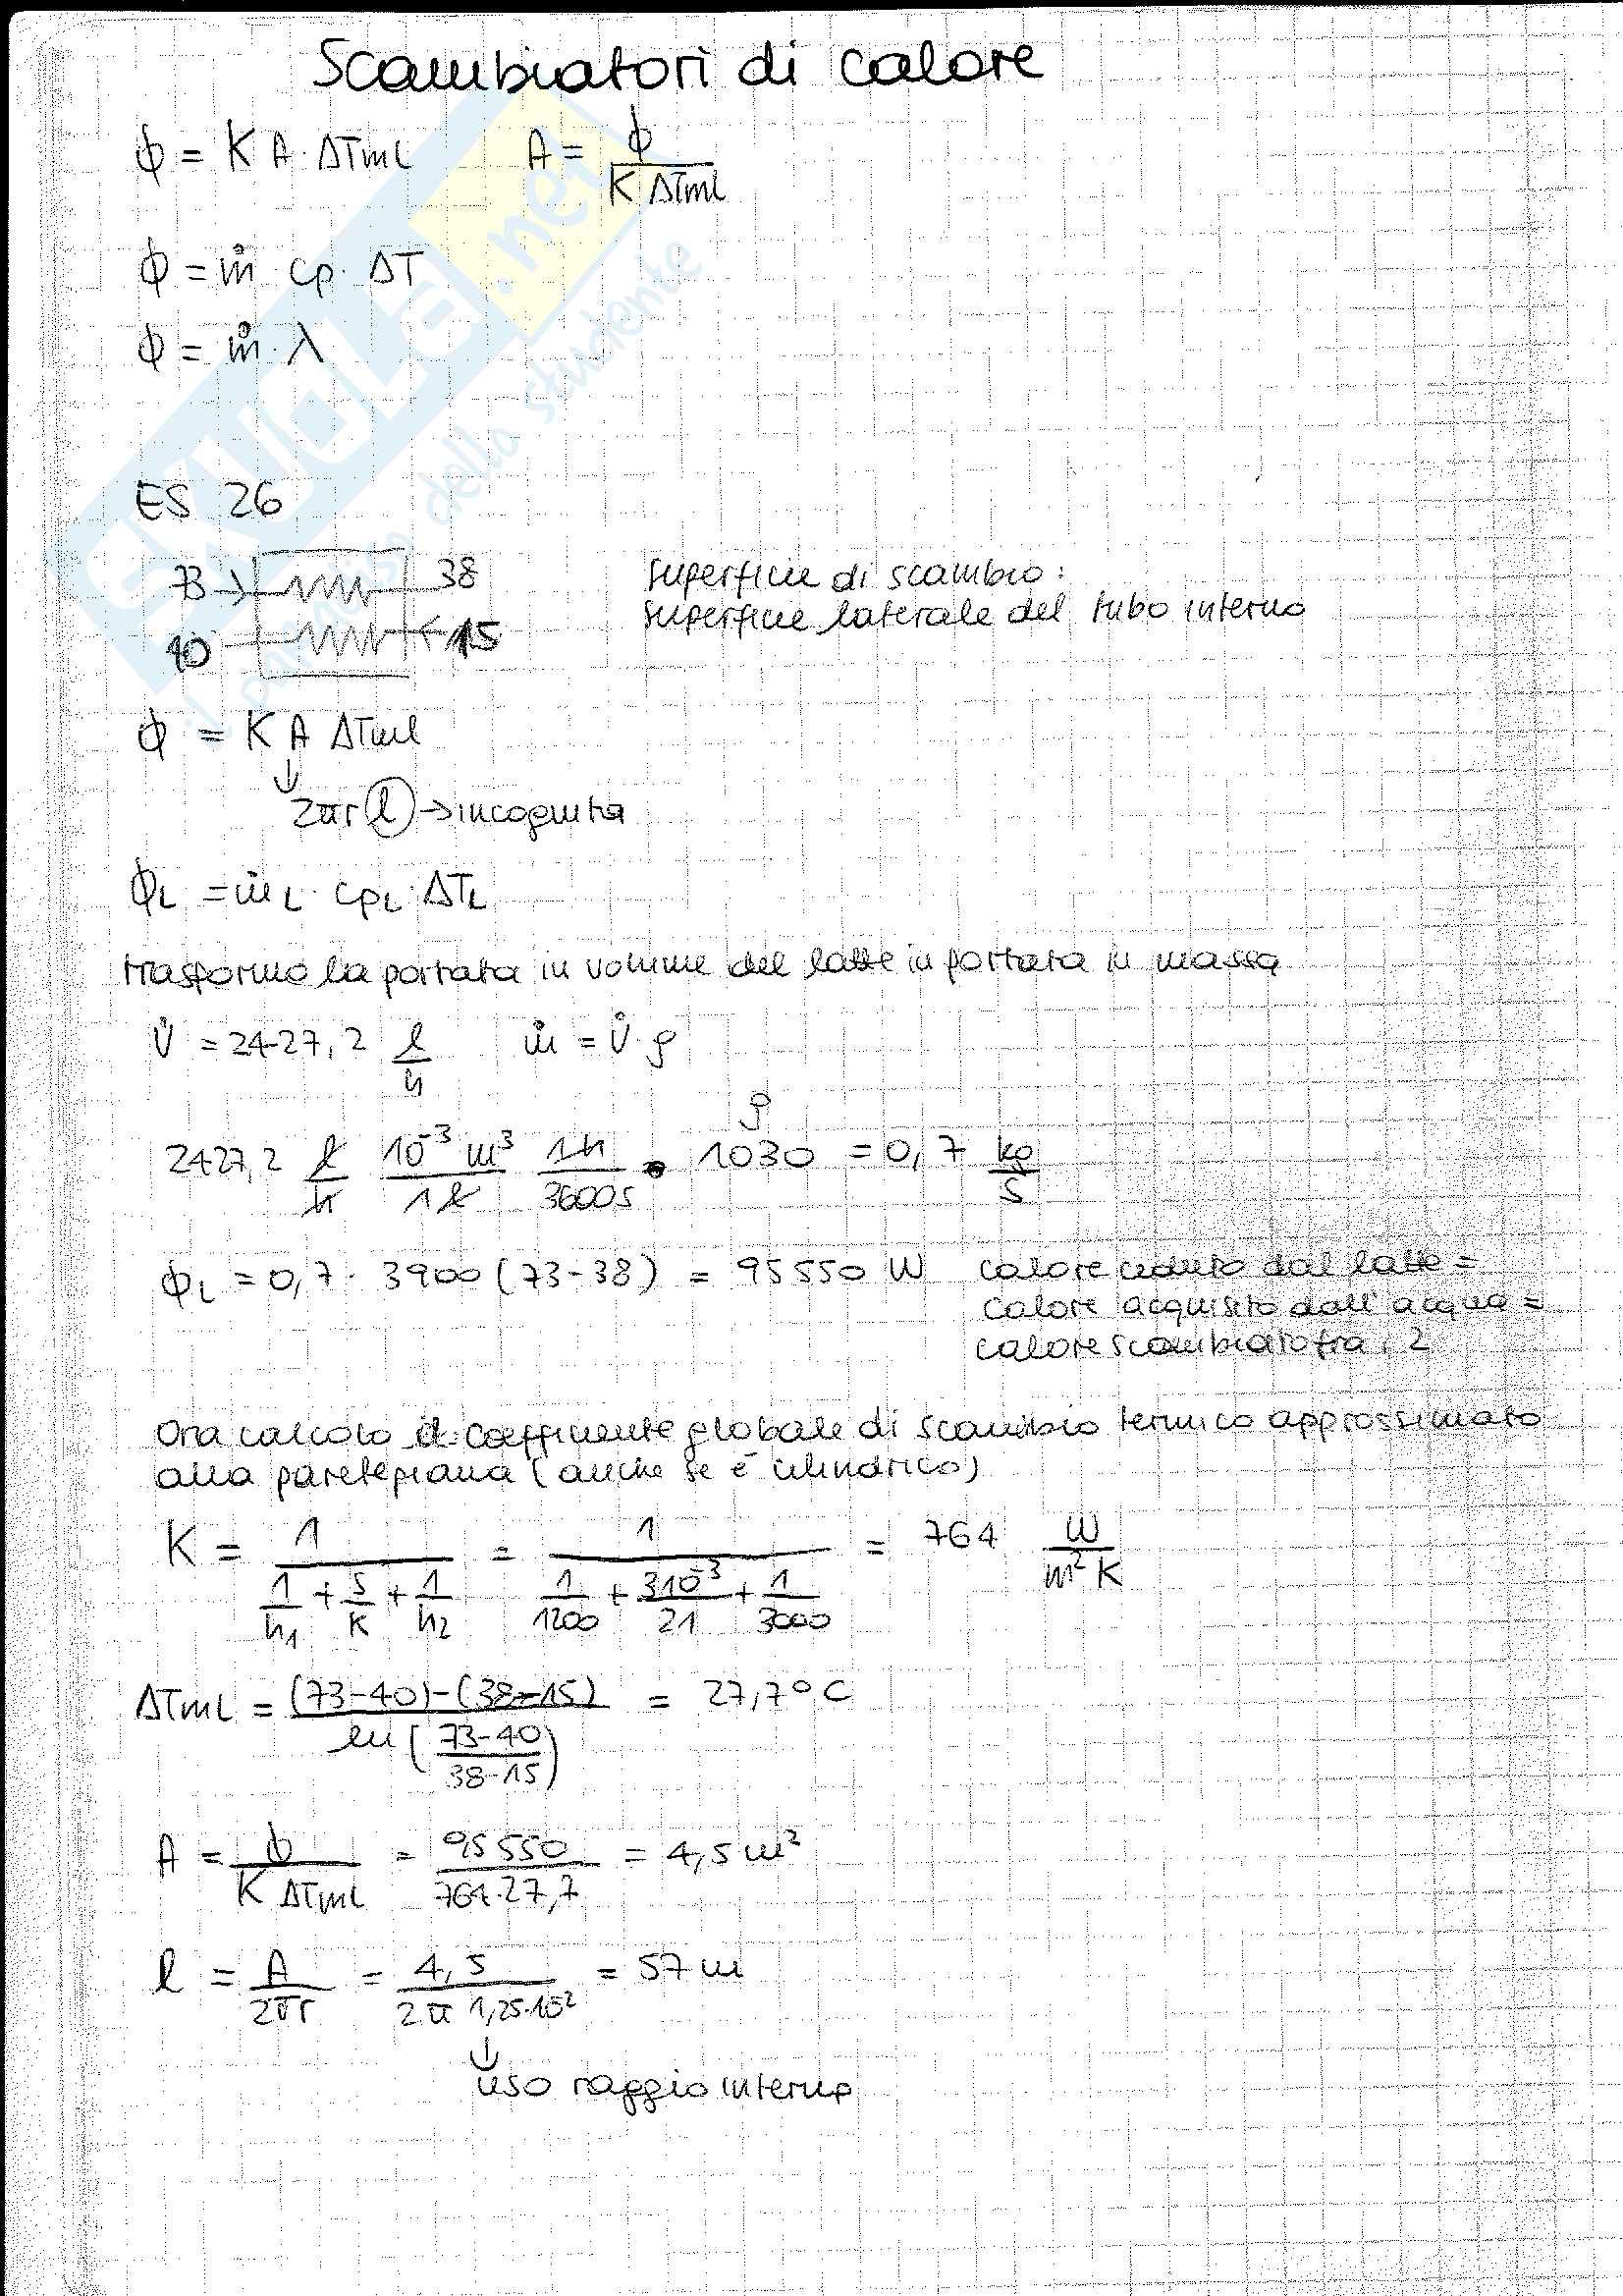 Scambiatori di calore
ϕ = K A · ΔTml    A = ϕ / (K ΔTml)
ϕ = ṁ cp · ΔT
ϕ = ṁ · λ
ES 26
73 → 38
40 ← 15
superficie di scambio:
superficie laterale del tubo interno
ϕ = K A ΔTml
↓
2πr(l) → incognita
ϕL = ṁL · cpL · ΔTL
trasformo la portata in volume del latte in portata in massa
V̇ = 2427,2 l/h    ṁ = V̇ · ρ
ρ
2427,2 l/h 10⁻³ m³/1 l 1h/3600s · 1030 = 0,7 kg/s
ϕL = 0,7 · 3900 (73-38) = 95550 W
calore ceduto dal latte =
calore acquisito dall'acqua =
calore scambiato fra i 2
Ora calcolo il coefficiente globale di scambio termico approssimato
alla parete piana (anche se è cilindrico)
K = 1 / (1/h1 + s/K + 1/h2) = 1 / (1/1200 + 3 10⁻³/21 + 1/3000) = 764 W/m² K
ΔTml = (73-40)-(38-15) / ln (73-40 / 38-15) = 27,7°C
A = ϕ / (K ΔTml) = 95550 / 764·27,7 = 4,5 m²
l = A / 2πr = 4,5 / 2π 1,25·10⁻² = 57 m
↓
uso raggio interno
SKUOLA.net
della studente